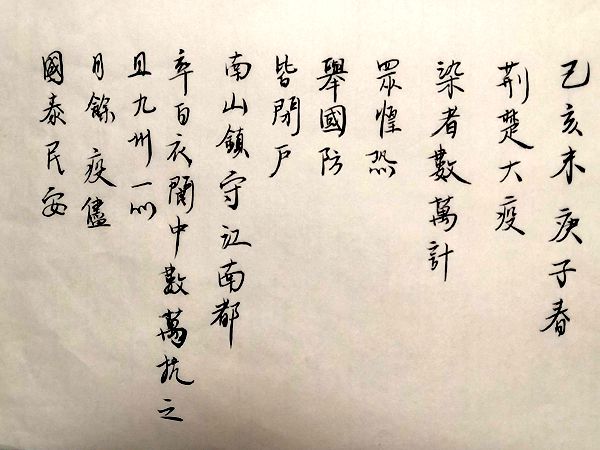 己亥末庚子春
荆楚大疫
染者數萬計
眾惶恐
舉國防
皆閉戶
南山鎮守江南都
率白衣閬中數萬抗之
且九州一心
月餘 疫儘
國泰民安